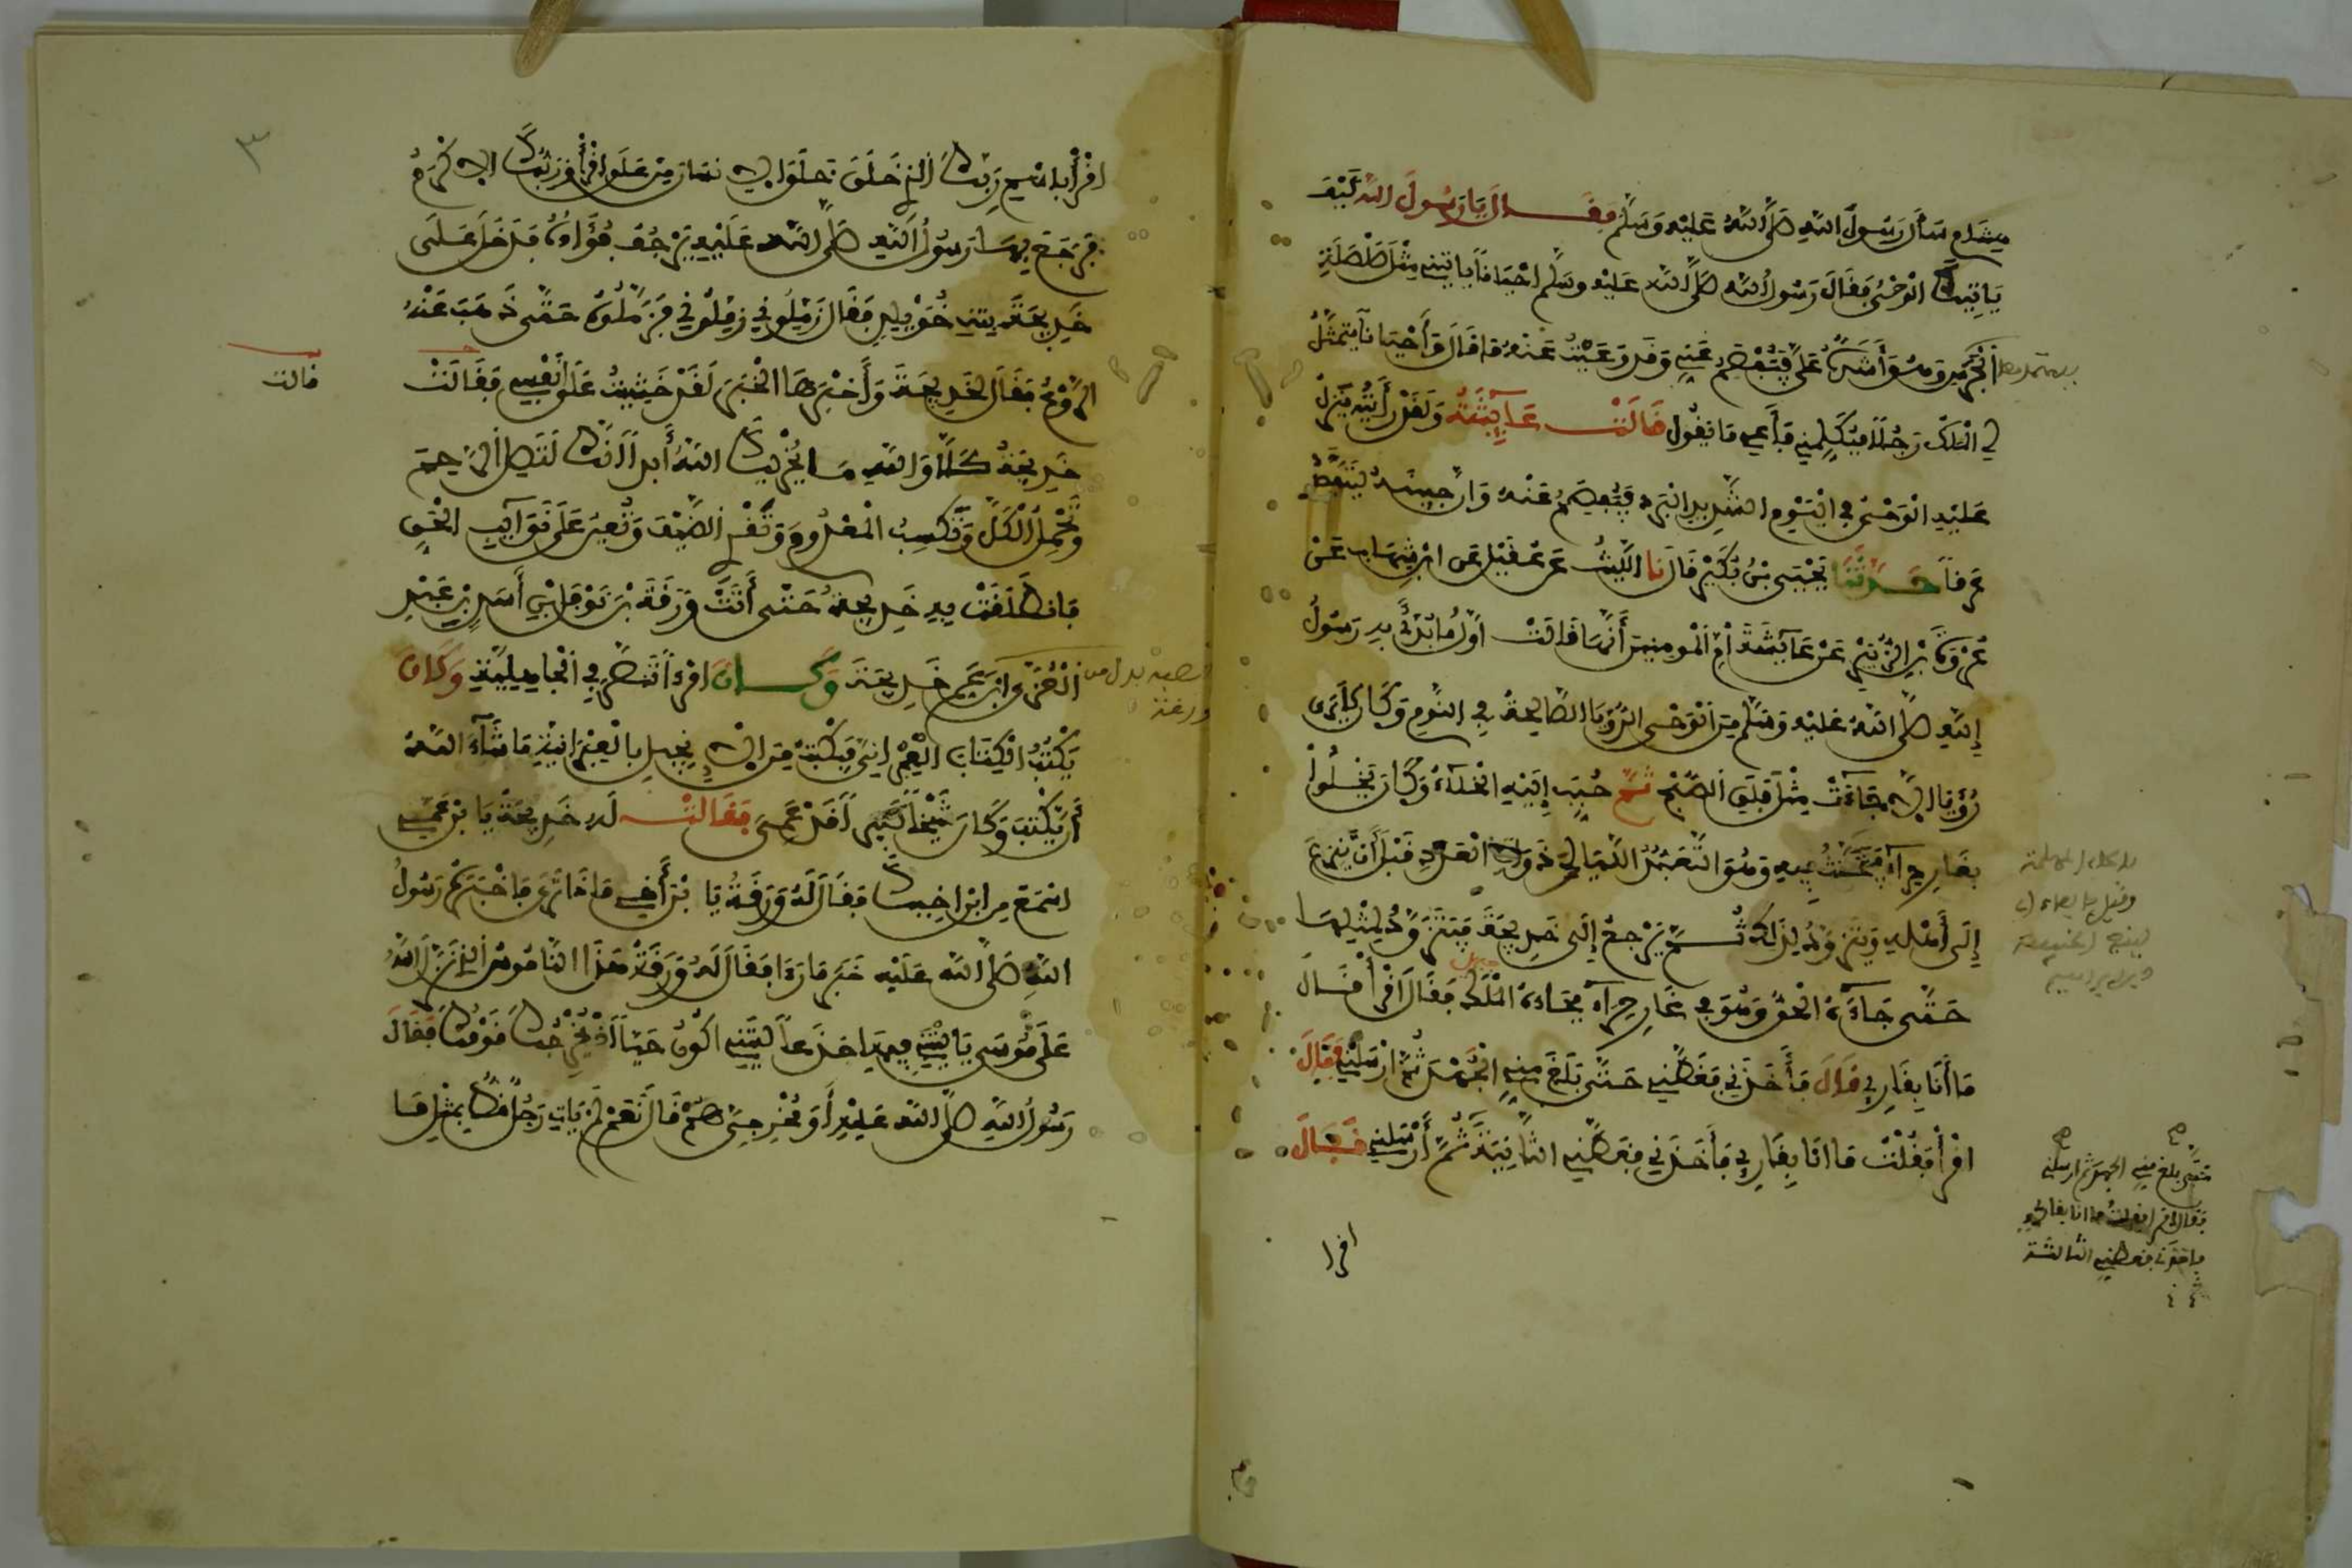 هشام سأل رسول الله صلى الله عليه وسلم فقال يا رسول الله كيف
ياتيك الوحي فقال رسول الله صلى الله عليه وسلم احيانا ياتيني مثل صلصلة
الجرس وهو أشده علي فيفصم عني وقد وعيت عنه ما قال وأحيانا يتمثل
لي الملك رجلا فيكلمني فأعي ما يقول قالت عائشة ولقد رأيته ينزل
عليه الوحي في اليوم الشديد البرد فيفصم عنه وان جبينه ليتفصد
عرقا حدثنا يحيى بن بكير قال نا الليث عن عقيل عن ابن شهاب عن
عروة بن الزبير عن عائشة أم المومنين أنها قالت أول ما بدئ به رسول
الله صلى الله عليه وسلم من الوحي الرؤيا الصالحة في النوم وكان لا يرى
رؤيا الا جاءت مثل فلق الصبح ثم حبب إليه الخلاء وكان يخلوا
بغار حراء فيتحنث فيه وهو التعبد الليالي ذوات العدد قبل أن ينزع
إلى أهله ويتزود لذلك ثم يرجع إلى خديجة فيتزود لمثلها
حتى جاءه الحق وهو في غار حراء فجاءه الملك فقال اقرأ فقال
ما أنا بقارئ قال فأخذني فغطني حتى بلغ مني الجهد ثم ارسلني فقال
اقرأ فقلت ما انا بقارئ فأخذني فغطني الثانية ثم أرسلني فقال
اقرا
حتى بلغ مني الجهد ثم ارسلني
فقال اقرا فقلت ما انا بقارئ
فاخذني فغطني الثالثة
اقرأ باسم ربك الذي خلق خلق الانسان من علق اقرأ وربك الاكرم
فرجع بها رسول الله صلى الله عليه يرجف فؤاده فدخل على
خديجة بنت خويلد فقال زملوني زملوني فزملوه حتى ذهب عنه
الروع فقال لخديجة وأخبرها الخبر لقد خشيت على نفسي فقالت
قالت
خديجة كلا والله ما يخزيك الله أبدا انك لتصل الرحم
وتحمل الكل وتكسب المعدوم وتقري الضيف وتعين على نوائب الحق
فانطلقت به خديجة حتى أتت ورقة بن نوفل بن أسد بن عبد
العزى ابن عم خديجة وكان امرءا تنصر في الجاهلية وكان
يكتب الكتاب العبراني فيكتب من الانجيل بالعبرانية ما شاء الله
أن يكتب وكان شيخا كبيرا قد عمي فقالت له خديجة يا بن عمي
اسمع من ابن اخيك فقال له ورقة يا بن أخي ما ذا ترى فاخبره رسول
الله صلى الله عليه خبر ما رءا فقال له ورقة هذا الناموس الذي نزل الله
على موسى يا ليتني فيها جذعا ليتني اكون حيا اذ يخرجك قومك فقال
رسول الله صلى الله عليه أو مخرجي هم قال نعم لم يات رجل قط بمثل ما
٣